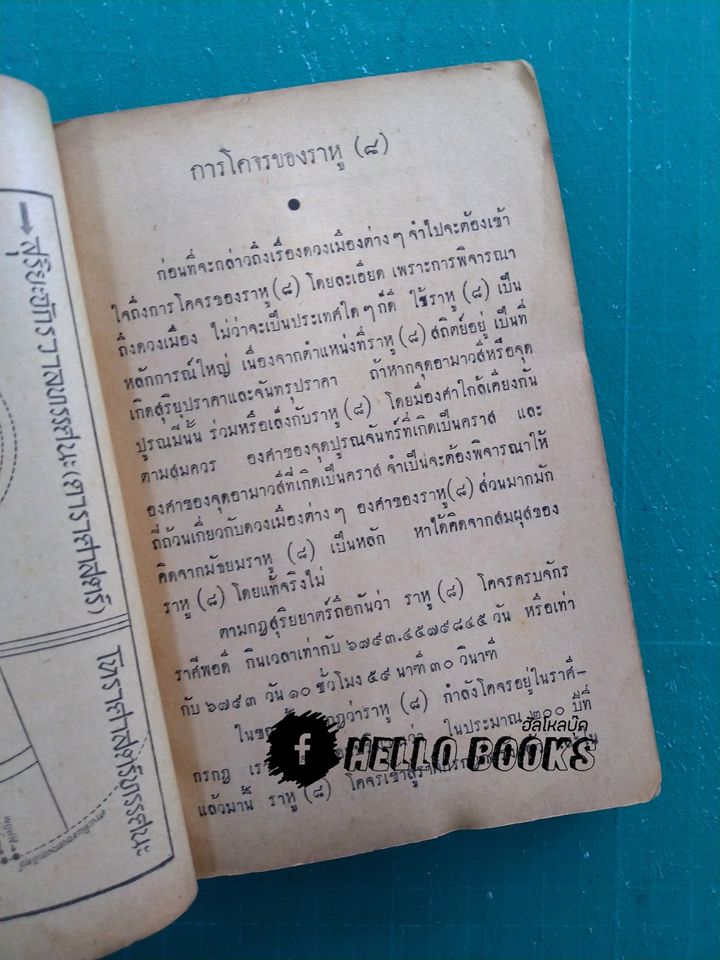 การโคจรของราหู (๘)
ก่อนที่จะกล่าวถึงเรื่องดวงเมืองต่าง ๆ จำไปจะต้องเข้า
ใจถึงการโคจรของราหู (๘) โดยละเอียด เพราะการพิจารณา
ถึงดวงเมือง ไม่ว่าจะเป็นประเทศใด ๆ ก็ดี ใช้ราหู (๘) เป็น
หลักการณ์ใหญ่ เนื่องจากตำแหน่งที่ราหู (๘) สถิตย์อยู่ เป็นที่
เกิดสุริยุปราคาและจันทรุปราคา ถ้าหากจุดอามาวสีหรือจุด
ปูรณมีนั้น ร่วมหรือเล็งกับราหู (๘) โดยมีองศาใกล้เคียงกัน
ตามสมควร องศาของจุดปูรณจันทร์ที่เกิดเป็นคราส และ
องศาของจุดอามาวสีที่เกิดเป็นคราส จำเป็นจะต้องพิจารณาให้
ถี่ถ้วนเกี่ยวกับดวงเมืองต่าง ๆ องศาของราหู (๘) ส่วนมากมัก
คิดจากมัธยมราหู (๘) เป็นหลัก หาได้คิดจากสมผุสของ
ราหู (๘) โดยแท้จริงไม่
ตามกฎสุริยยาตร์ถือกันว่า ราหู (๘) โคจรครบจักร
ราศีพอดี กินเวลาเท่ากับ ๖๗๙๓.๔๕๗๙๘๔๕ วัน หรือเท่า
กับ ๖๗๙๓ วัน ๑๐ ชั่วโมง ๕๙ นาที ๓๐ วินาที
ราหู (๘) กำลังโคจรอยู่ในราศี-
กรกฎ ในประมาณ ๒๐๐ ปีที่
แล้วมานี้ ราหู (๘) โคจรเข้าสู่
สุริยะจักรวาลทรรศนะ (ดาราศาสตร์)
โหราศาสตร์ทรรศนะ
f
ฮัลโหลบุ๊ค
HELLO BOOKS